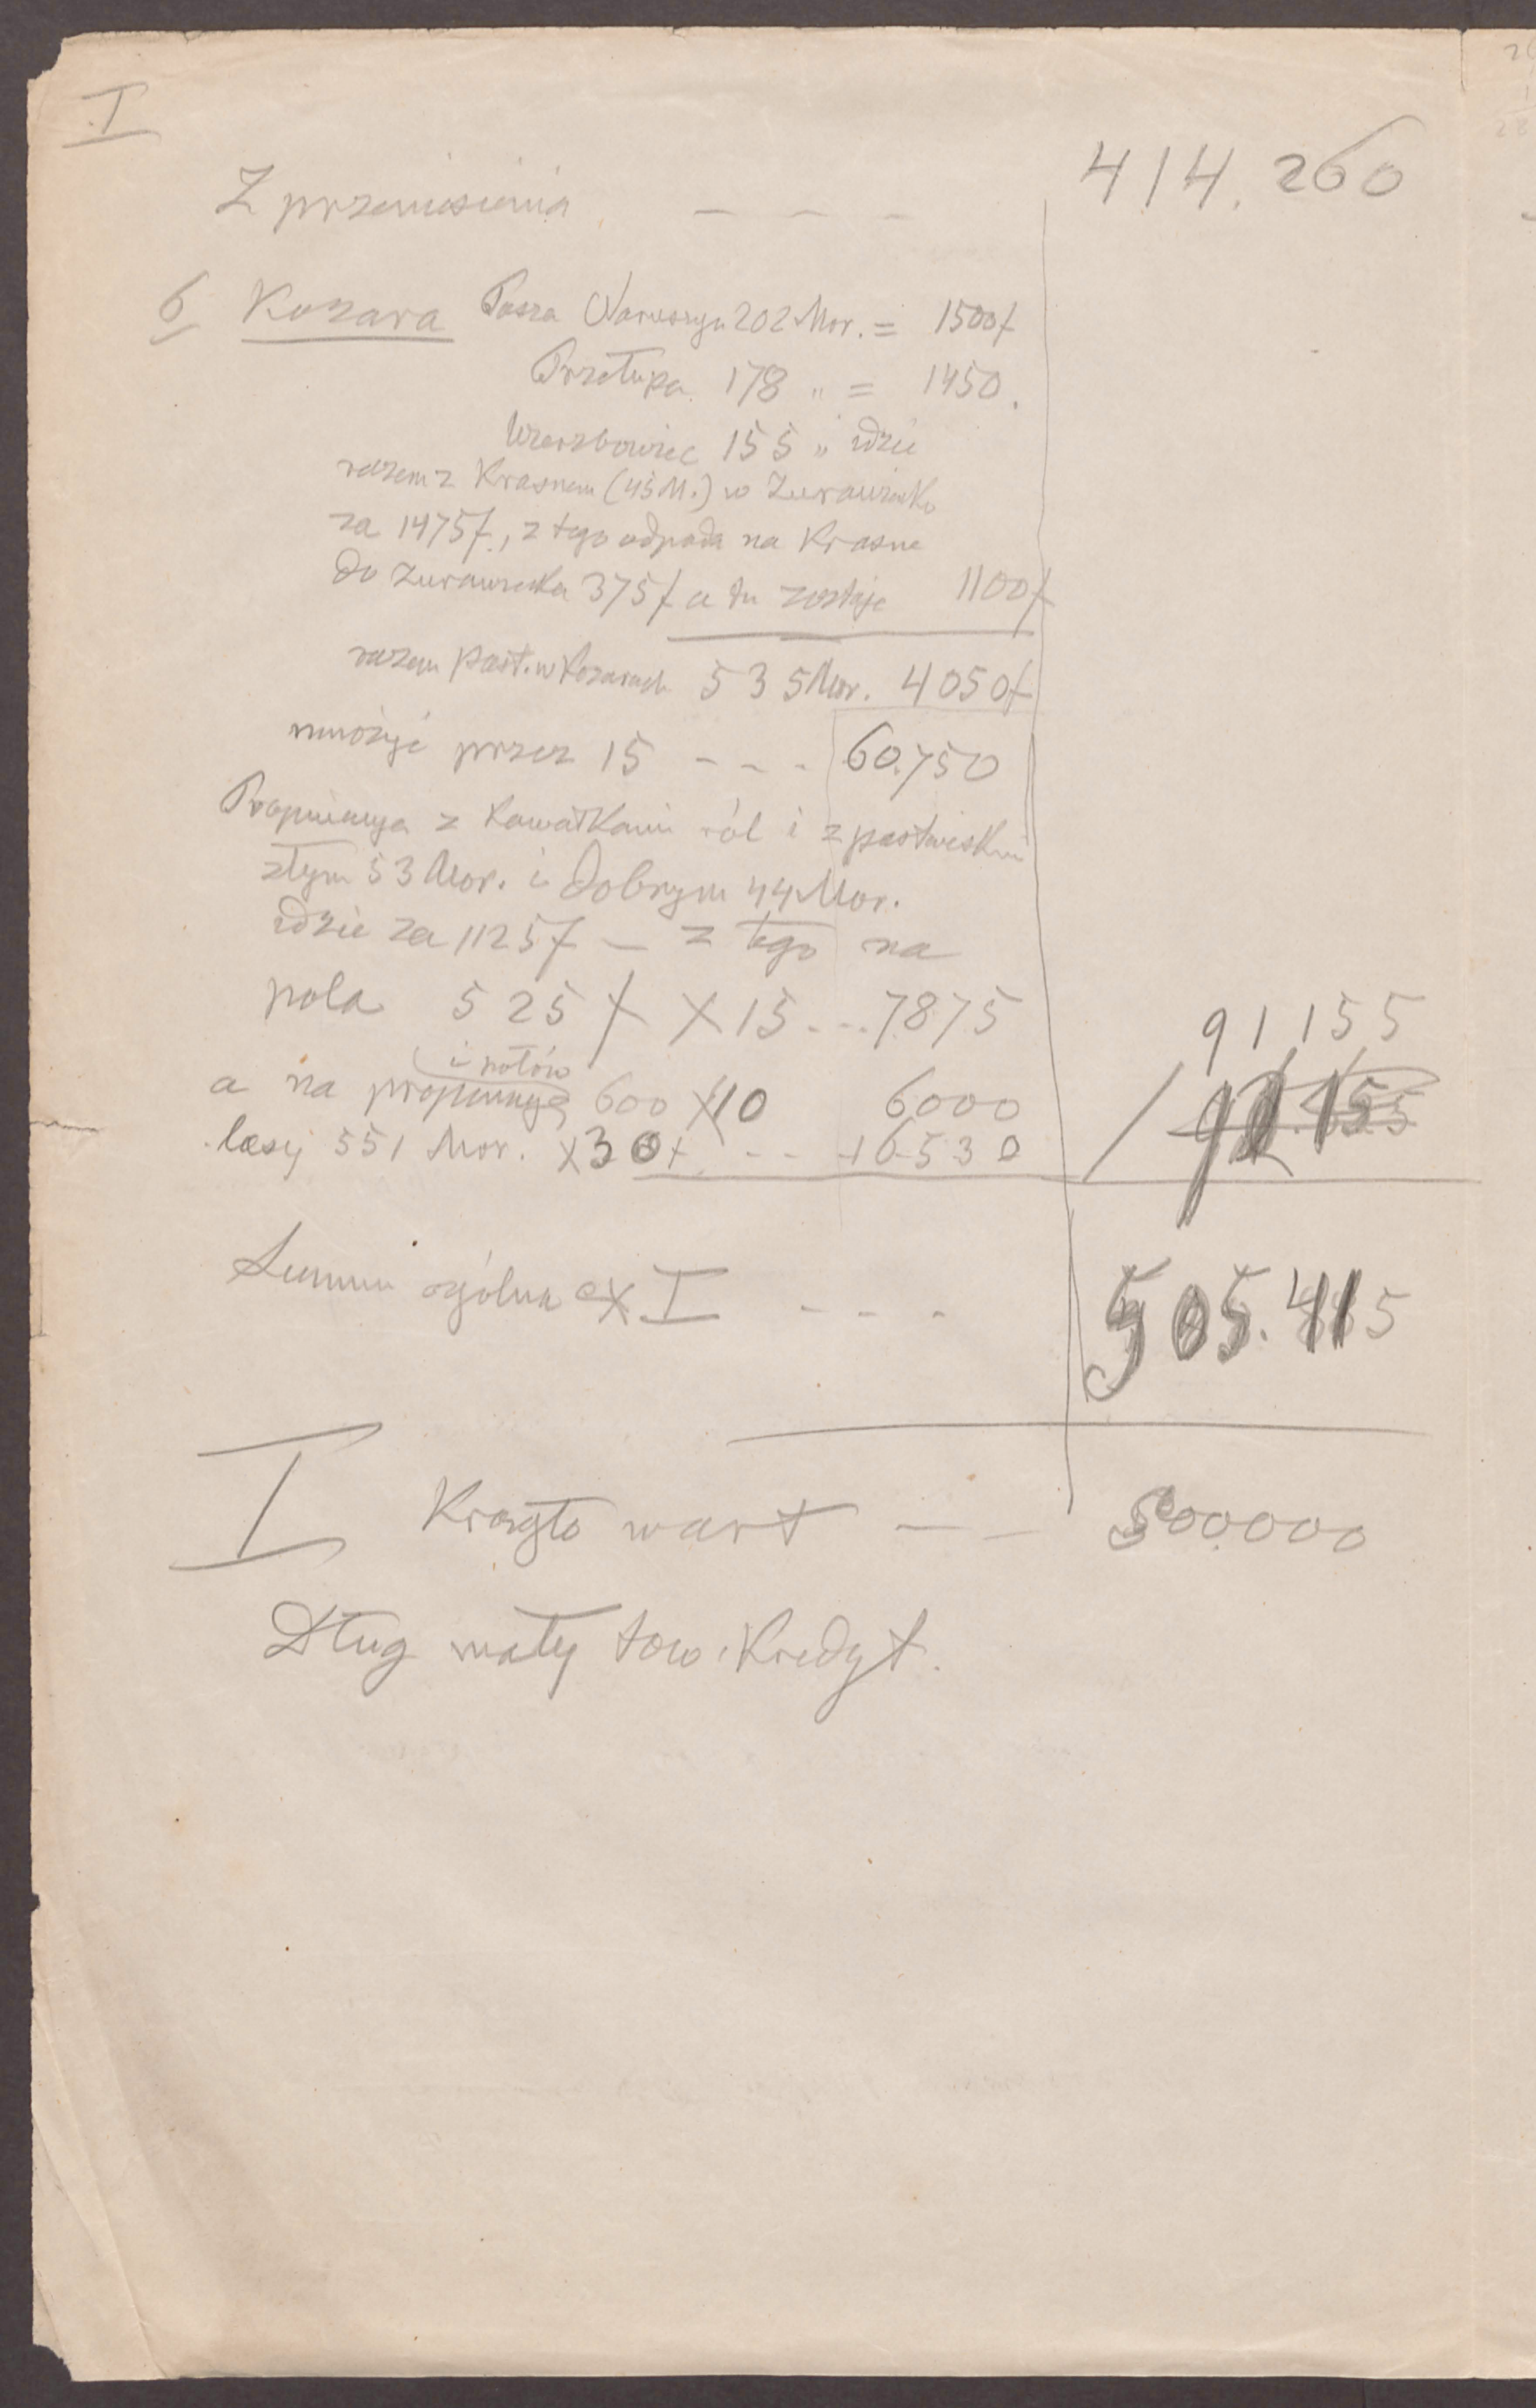 I
Z przeniesienia - - - 414.260
6 Kozara Pasza 202 Mor. = 1500f
Przetupa 178 " = 1450.
Wierzbowiec 155 " idzie
razem z Krasnem (45 M.) w Zurawienko
za 1475f., z tego odpada na Krasne
do Zurawienka 375f a tu zostaje 1100f
razem past. w Kozarach 535 Mor. 4050f
mnożyć przez 15 - - - 60.750
Propinacya z kawałkami ról i z pastwiskiem
złym 53 Mor. i dobrym 44 Mor.
idzie za 1125f - z tego na
pola 525f X 15 ... 7875
91155
i
a na propinacyę 600 X 10 6000
lasy 551 Mor. X 30f. - - 16530
Summa ogólna ex I - - - 505.415
I Krągło wart - - 500.000
Dług mały tow. Kredyt.